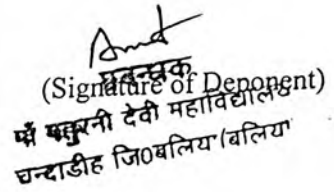 प्रबन्धक
(Signature of Deponent)
माँ फुलेरनी देवी महाविद्यालय
चन्दाडीह जि०बलिया (बलिया